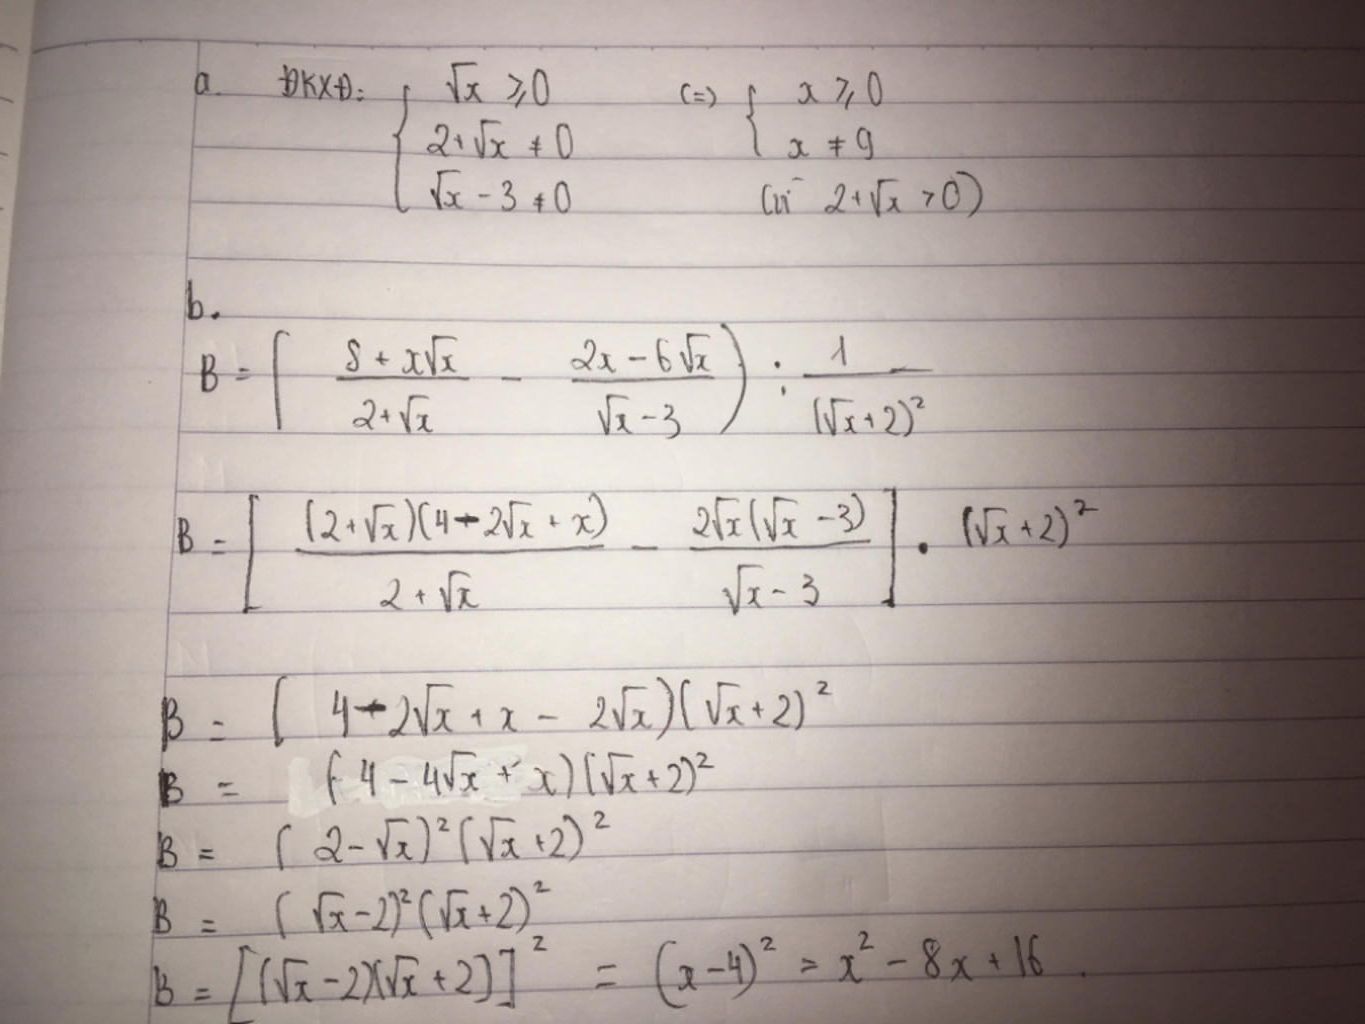 a. ĐKXĐ: { √x ⩾ 0 (=) { x ⩾ 0
2+√x ≠ 0 x ≠ 9
√x - 3 ≠ 0 (vì 2+√x > 0)
b.
B = ( (8 + x√x)/(2+√x) - (2x - 6√x)/(√x - 3) ) : 1/(√x+2)²
B = [ (2+√x)(4 - 2√x + x)/(2 + √x) - 2√x(√x - 3)/(√x - 3) ] . (√x + 2)²
B = ( 4 - 2√x + x - 2√x)(√x + 2)²
B = ( 4 - 4√x + x)(√x + 2)²
B = ( 2 - √x)² (√x + 2)²
B = ( √x - 2)² (√x + 2)²
B = [(√x - 2)(√x + 2)]² = (x - 4)² = x² - 8x + 16.